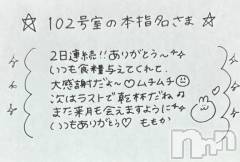 ☆ 102号室の本指名さま ☆
2日連続!!ありがとう〜
いつも食糧与えてくれて
大感謝だよ〜♡ムチムチ☺
次はラストで乾杯だね♪
また来月も会えますように
いつもありがとう♡ ももか